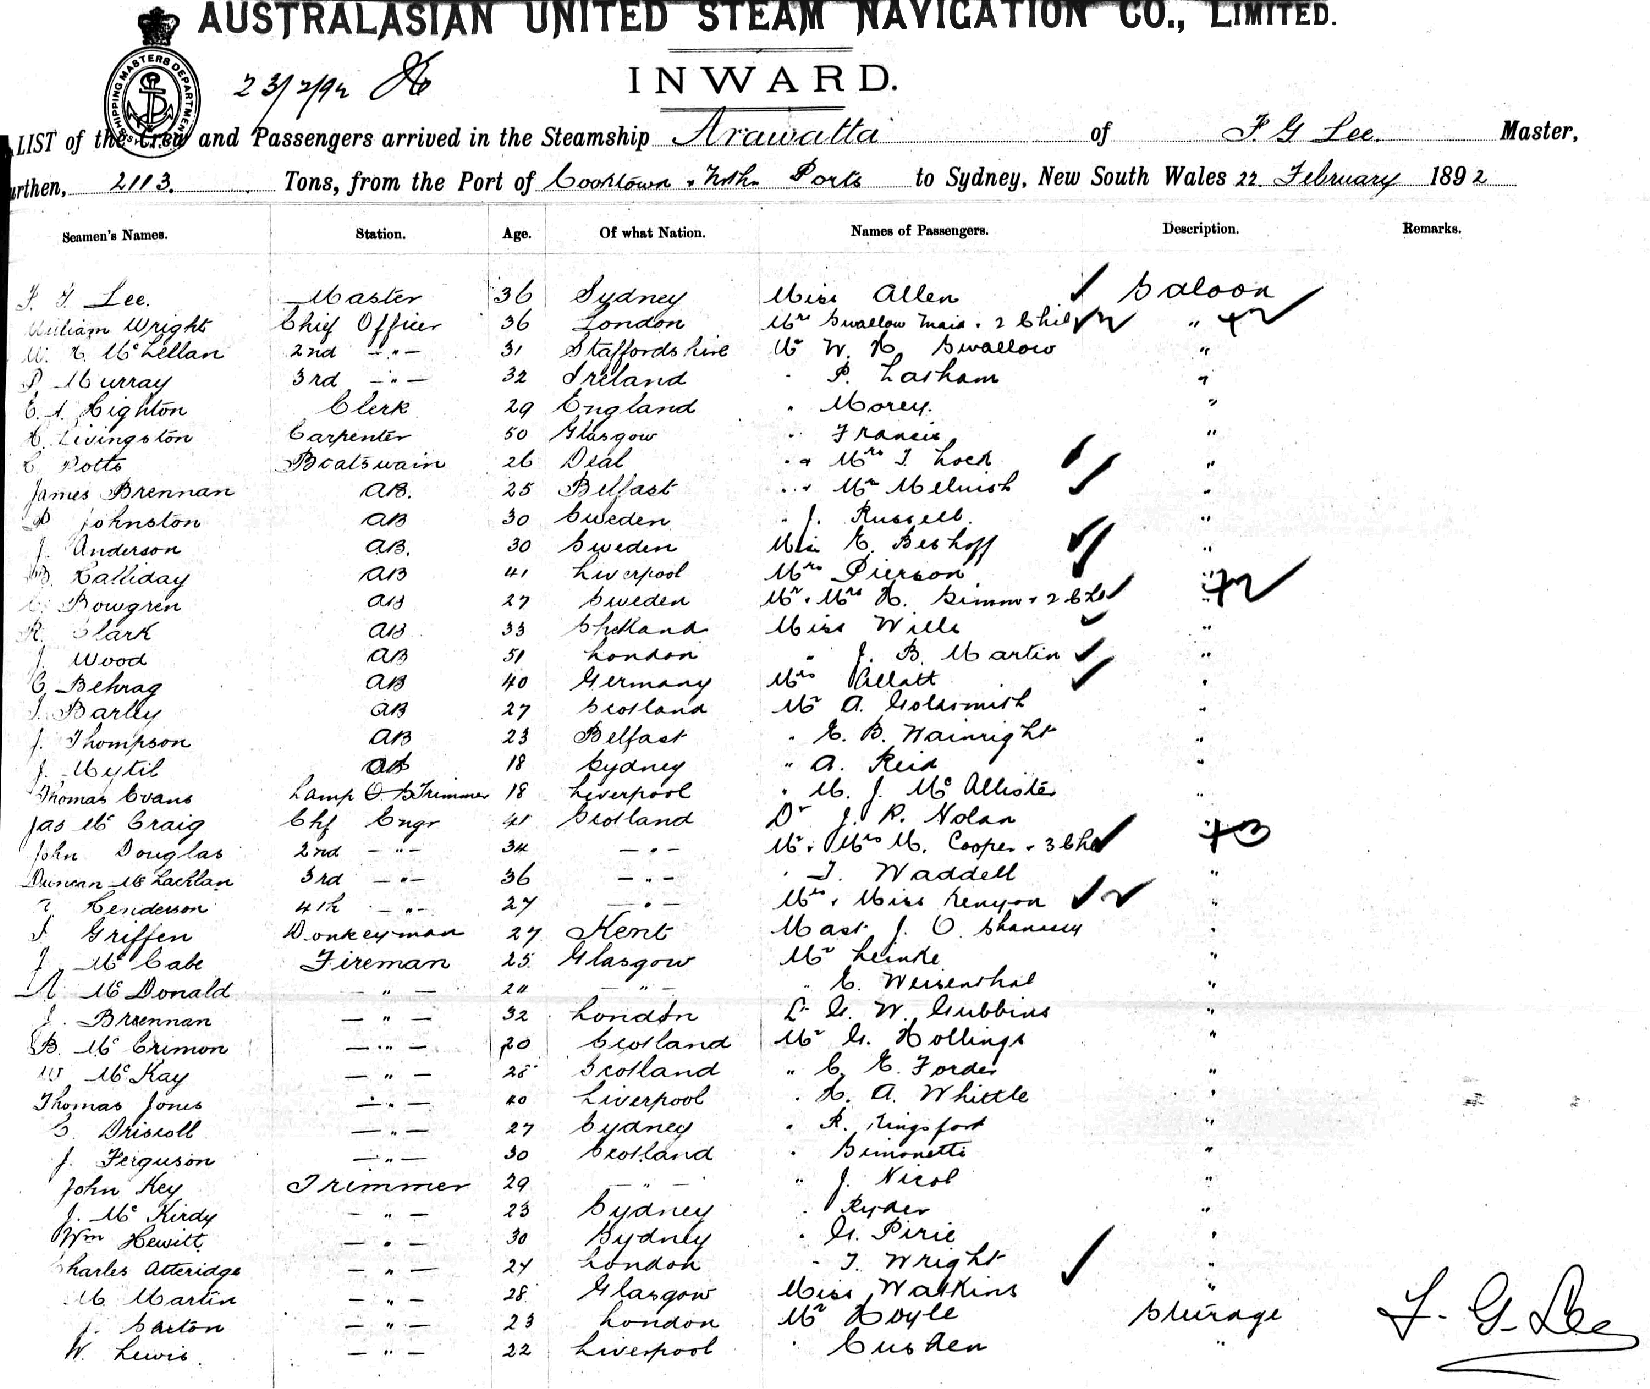 AUSTRALASIAN UNITED STEAM NAVIGATION CO., LIMITED.
SHIPPING MASTERS DEPARTMENT
23/2/92
INWARD.
LIST of the Crew and Passengers arrived in the Steamship Arawatta of F G Lee. Master,
urthen, 2113. Tons, from the Port of Cooktown & Nthn Ports to Sydney, New South Wales 22 February 1892
Seamen's Names. Station. Age. Of what Nation. Names of Passengers. Description. Remarks.
F. G. Lee. Master 36 Sydney Miss Allen Saloon
William Wright Chief Officer 36 London Mrs Swallow maid & 2 Chil "
McLellan 2nd — " — 31 Staffordshire Mr W. H. Swallow "
P. Murray 3rd — " — 32 Ireland " P. Lasham "
E. A. Highton Clerk 29 England " Morey. "
H. Livingston Carpenter 50 Glasgow " Francis "
C. Potts Boatswain 26 Deal " Mrs T. Lock "
James Brennan AB. 25 Belfast " Mr Melnish "
P Johnston AB 30 Sweden " J. Russell. "
J. Anderson AB. 30 Sweden Miss E. Beshoff "
Halliday AB 41 Liverpool Mrs Pierson "
Bowgren AB 27 Sweden Mr & Mrs H. Simms & 2 Chd "
R. Clark AB 33 Shetland Miss Wills "
J. Wood AB 51 London " J. B. Martin "
C. Behrag AB 40 Germany Mrs Allatt "
J. Barley AB 27 Scotland Mr A. Goldsmith "
J. Thompson AB 23 Belfast " E. B. Wainright "
J. Mytil 18 Sydney " A. Reid "
Thomas Evans Lamp & Trimmer 18 Liverpool " M. J. McAllister "
Jas McCraig Chf Engr 41 Scotland Dr J. P. Nolan "
John Douglas 2nd — " — 34 — " — Mr & Mrs M. Cooper & 3 Chd "
Duncan McLachlan 3rd — " — 36 — " — " T. Waddell "
Henderson 4th — " — 27 — " — Mrs & Miss Kenyon "
J. Griffen Donkeyman 27 Kent Mast J. O. Shanessy "
J. McCabe Fireman 25 Glasgow Mr Leinke "
A. McDonald — " — — " — " E. Weisenthal "
J. Brennan — " — 32 London G. W. Gubbins "
B. McCrimon — " — 20 Scotland Mr G. Hollings "
W McKay — " — 28 Scotland " C. E. Forder "
Thomas Jones — " — 40 Liverpool " H. A. Whittle "
C. Driscoll — " — 27 Sydney " R. Kingsford "
J. Ferguson — " — 30 Scotland " Simonetti "
John Key Trimmer 29 — " — " J. Nicol "
J. McKirdy — " — 23 Sydney " Ryder "
Wm Hewitt — " — 30 Sydney " G. Pirie "
Charles Atteridge — " — 24 London " T. Wright "
M. Martin — " — 28 Glasgow Miss Watkins "
J. Saxton — " — 23 London Mr Hoyle Steerage
W. Lewis — " — 22 Liverpool " Cusden "
F. G. Lee